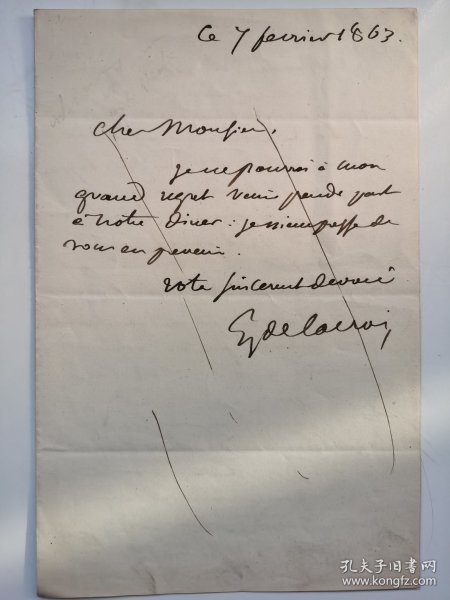 Ce 7 fevrier 1863.
Cher Monsieur,
je ne pourrai à mon
grand regret venir prendre part
à notre diner : je m'empresse de
vous en prevenir.
votre sincerement devoué
Eg delacroix
孔夫子旧书网
www.kongfz.com